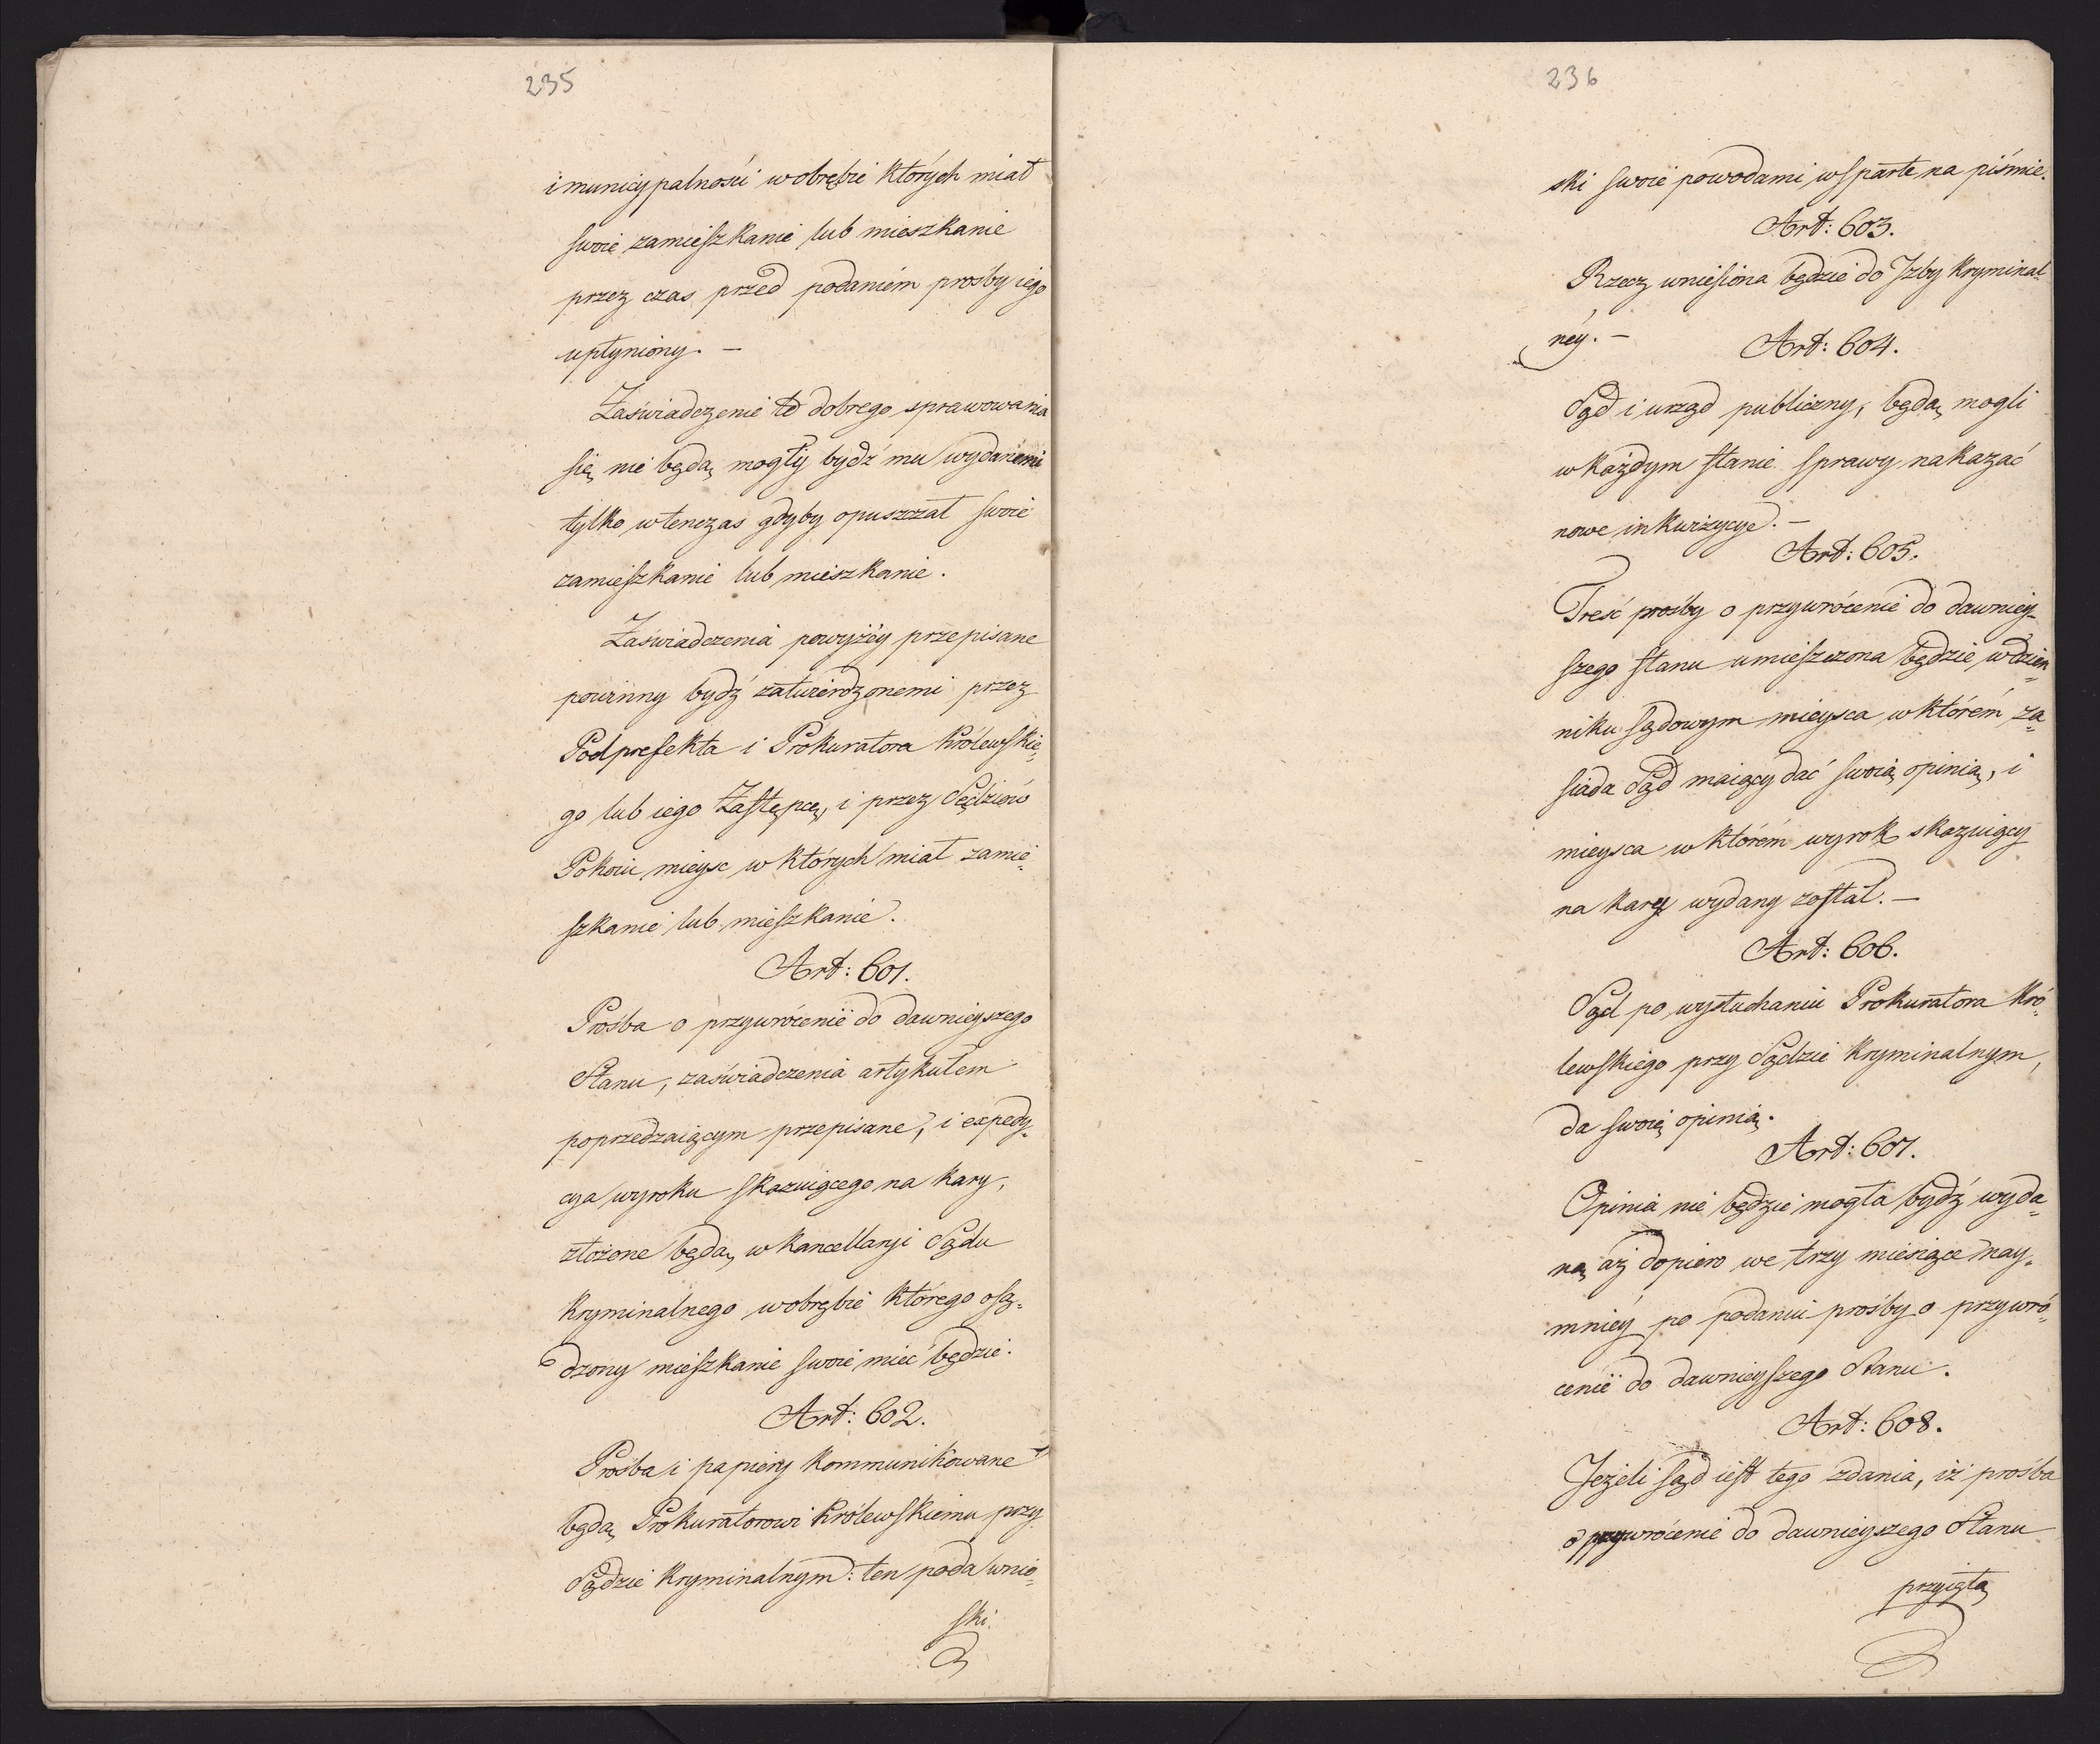 235
i municypalności w obrębie których miał
swoie zamieszkanie lub mieszkanie
przez czas przed podaniem prośby iego
upłyniony. —
Zaświadczenie te dobrego sprawowania
się nie będą mogły bydź mu wydanemi
tylko wtenczas gdyby opuszczał swoie
zamieszkanie lub mieszkanie.
Zaświadczenia powyżéy przepisane
powinny bydź zatwierdzonemi przez
Podprefekta i Prokuratora Królewskie„
go lub iego Zastępcę, i przez Sędziów
Pokoiu mieysc w których miał zamie„
szkanie lub mieszkanie.
Art: 601.
Prośba o przywrócenie do dawnieyszego
Stanu, zaświadczenia artykułem
poprzedzaiącym przepisane, i expedy„
cya wyroku skazuiącego na kary,
złożone będą w kancellaryi Sądu
Kryminalnego w obrębie którego osą„
dzony mieszkanie swoie mieć będzie.
Art: 602.
Prośba i papiery kommunikowane
będą Prokuratorowi Królewskiemu przy
Sądzie Kryminalnym: ten poda wnio„
ski
236
ski swoie powodami wsparte na piśmie.
Art: 603.
Rzecz wniesiona będzie do Izby Kryminal
néy. —
Art: 604.
Sąd i urząd publiczny, będą mogli
w każdym stanie sprawy nakazać
nowe inkwizycye. —
Art: 605.
Treść prośby o przywrócenie do dawniey„
szego stanu umieszczona będzie w dzien„
niku sądowym mieysca w którém za„
siada Sąd maiący dać swoią opinią, i
mieysca w którém wyrok skazuiący
na karę wydany został. —
Art: 606.
Sąd po wysłuchaniu Prokuratora Kró„
lewskiego przy Sądzie Kryminalnym,
da swoię opinią.
Art: 607.
Opinia nie będzie mogła bydź wyda„
ną aż dopiero we trzy miesiące nay„
mniéy po podaniu prośby o przywró„
cenie do dawnieyszego Stanu.
Art: 608.
Jeżeli sąd iest tego zdania, iż prośba
o przywrócenie do dawnieyszego Stanu
przyiętą